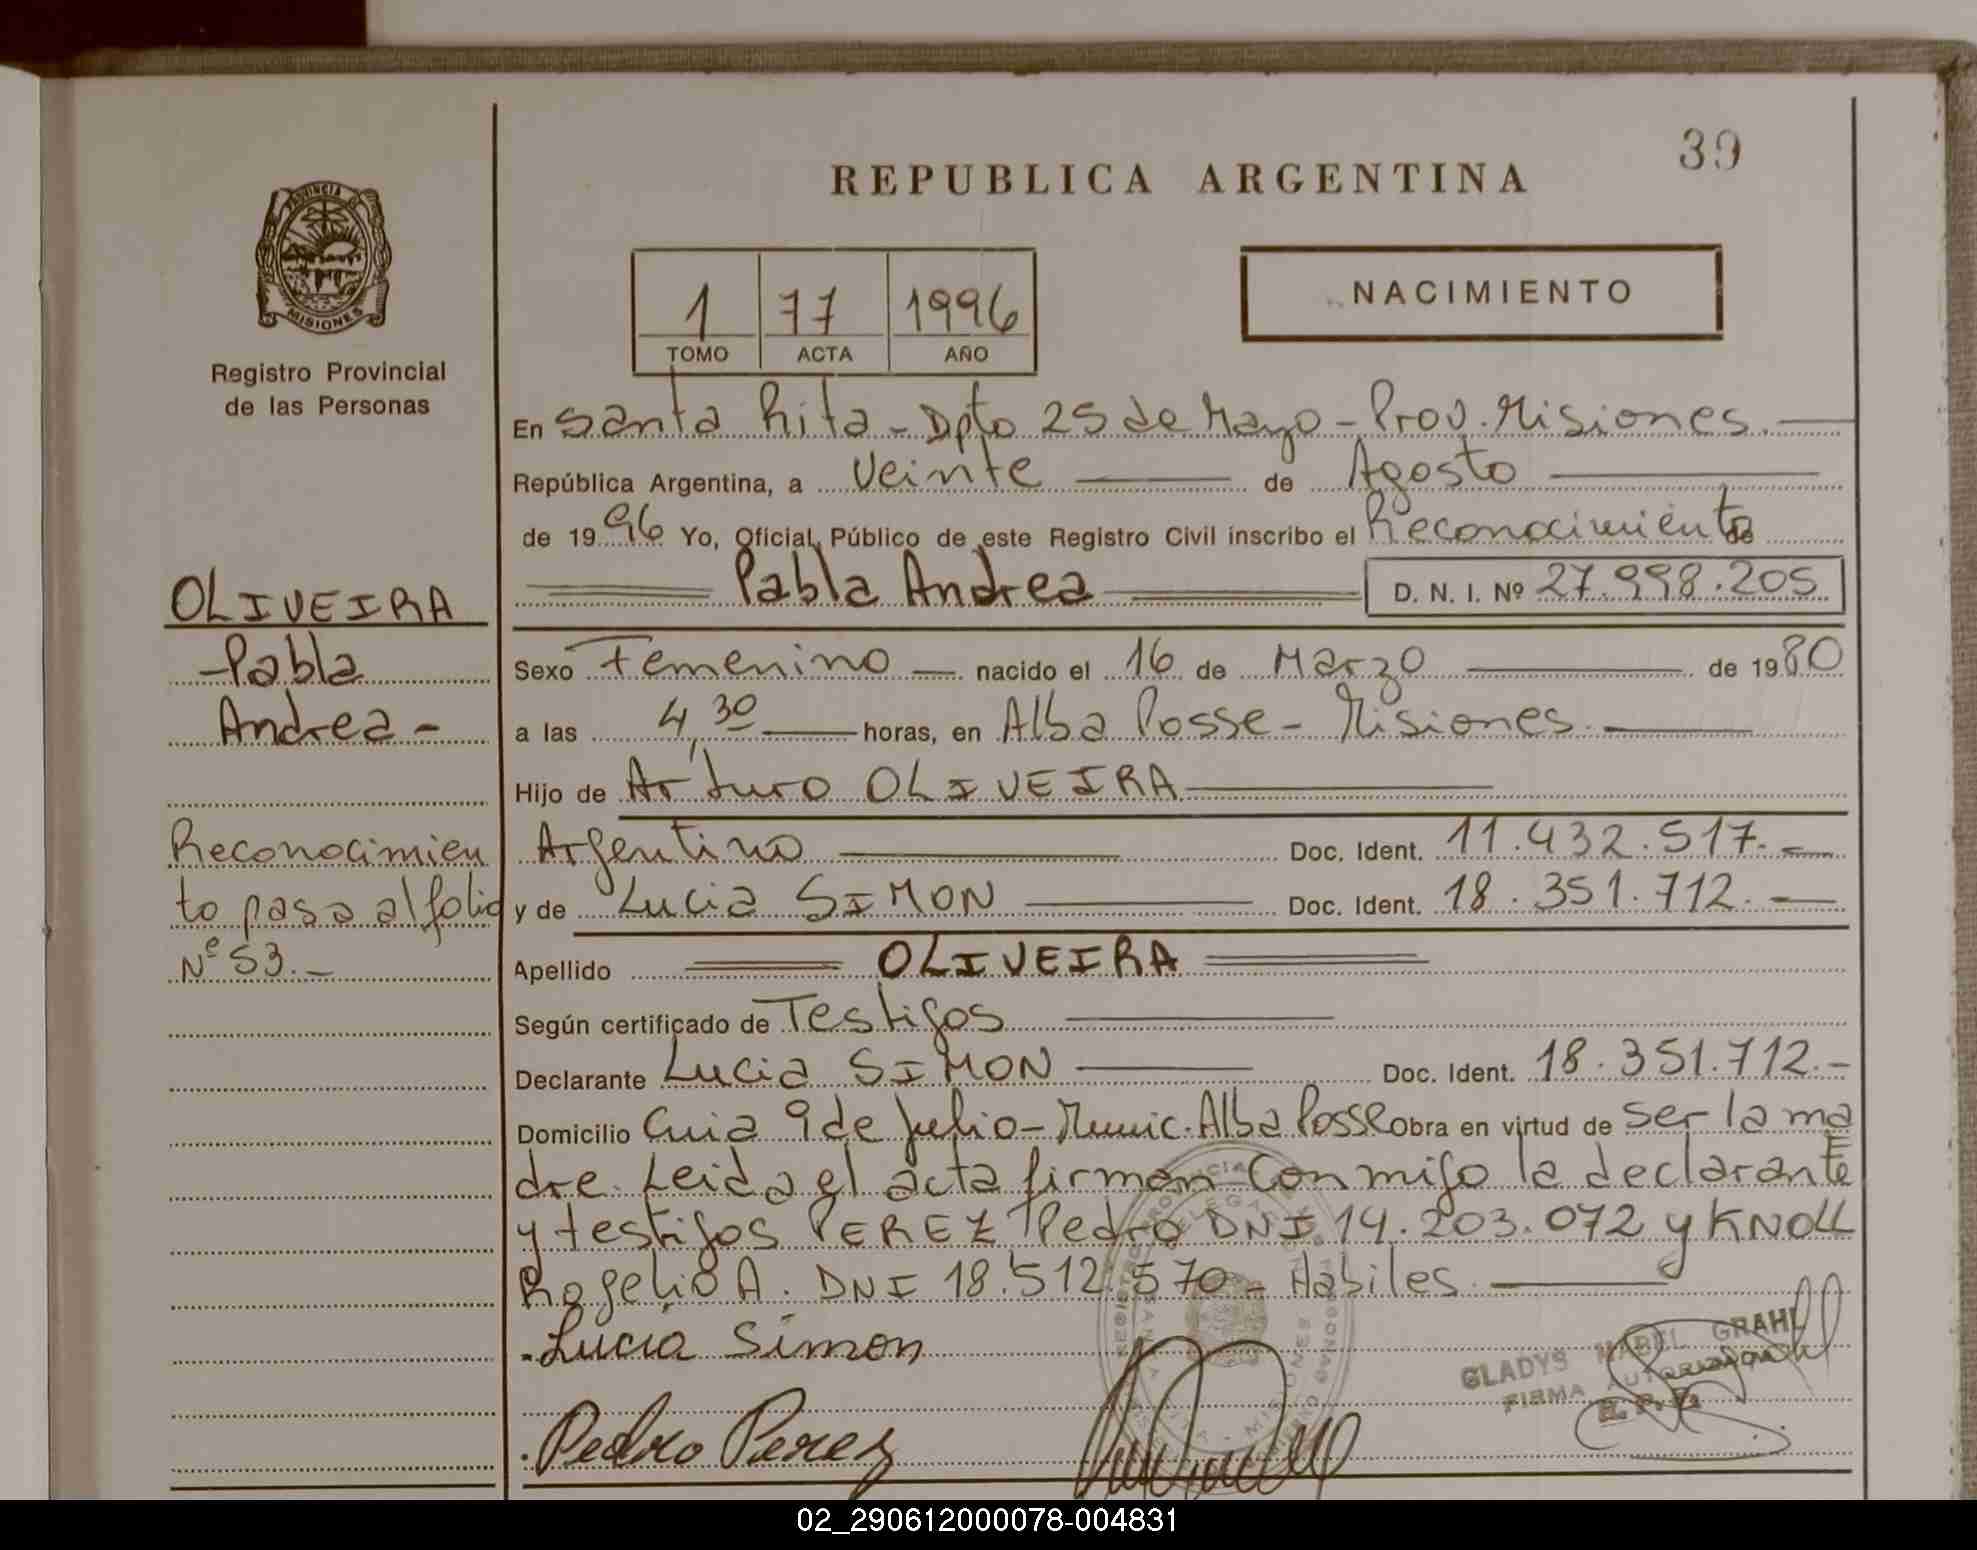 39
REPUBLICA ARGENTINA
PROVINCIA DE
MISIONES
Registro Provincial
de las Personas
1 77 1996
TOMO ACTA AÑO
NACIMIENTO
En Santa Rita - Dpto 25 de Mayo - Prov. Misiones.
República Argentina, a Veinte de Agosto
de 1996 Yo, Oficial Público de este Registro Civil inscribo el Reconocimiento de
Pabla Andrea D. N. I. Nº 27.998.205
OLIVEIRA
-Pabla
Andrea-
Reconocimien
to pasa al folio
Nº 53.-
Sexo Femenino nacido el 16 de Marzo de 1980
a las 4,30 horas, en Alba Posse - Misiones.
Hijo de Arturo OLIVEIRA
Argentino Doc. Ident. 11.432.517.-
y de Lucia SIMON Doc. Ident. 18.351.712.-
Apellido OLIVEIRA
Según certificado de Testigos
Declarante Lucia SIMON Doc. Ident. 18.351.712.-
Domicilio Guia 9 de Julio - Munic. Alba Posse Obra en virtud de ser la ma
dre. Leida el acta firman conmigo la declarante
y testigos PEREZ Pedro DNI 14.203.072 y KNOLL
Rogelio A. DNI 18.512.570 - Habiles
Lucia Simon
Pedro Perez
GLADYS MABEL GRAHL
FIRMA AUTORIZADA
R. P. P.
02_290612000078-004831